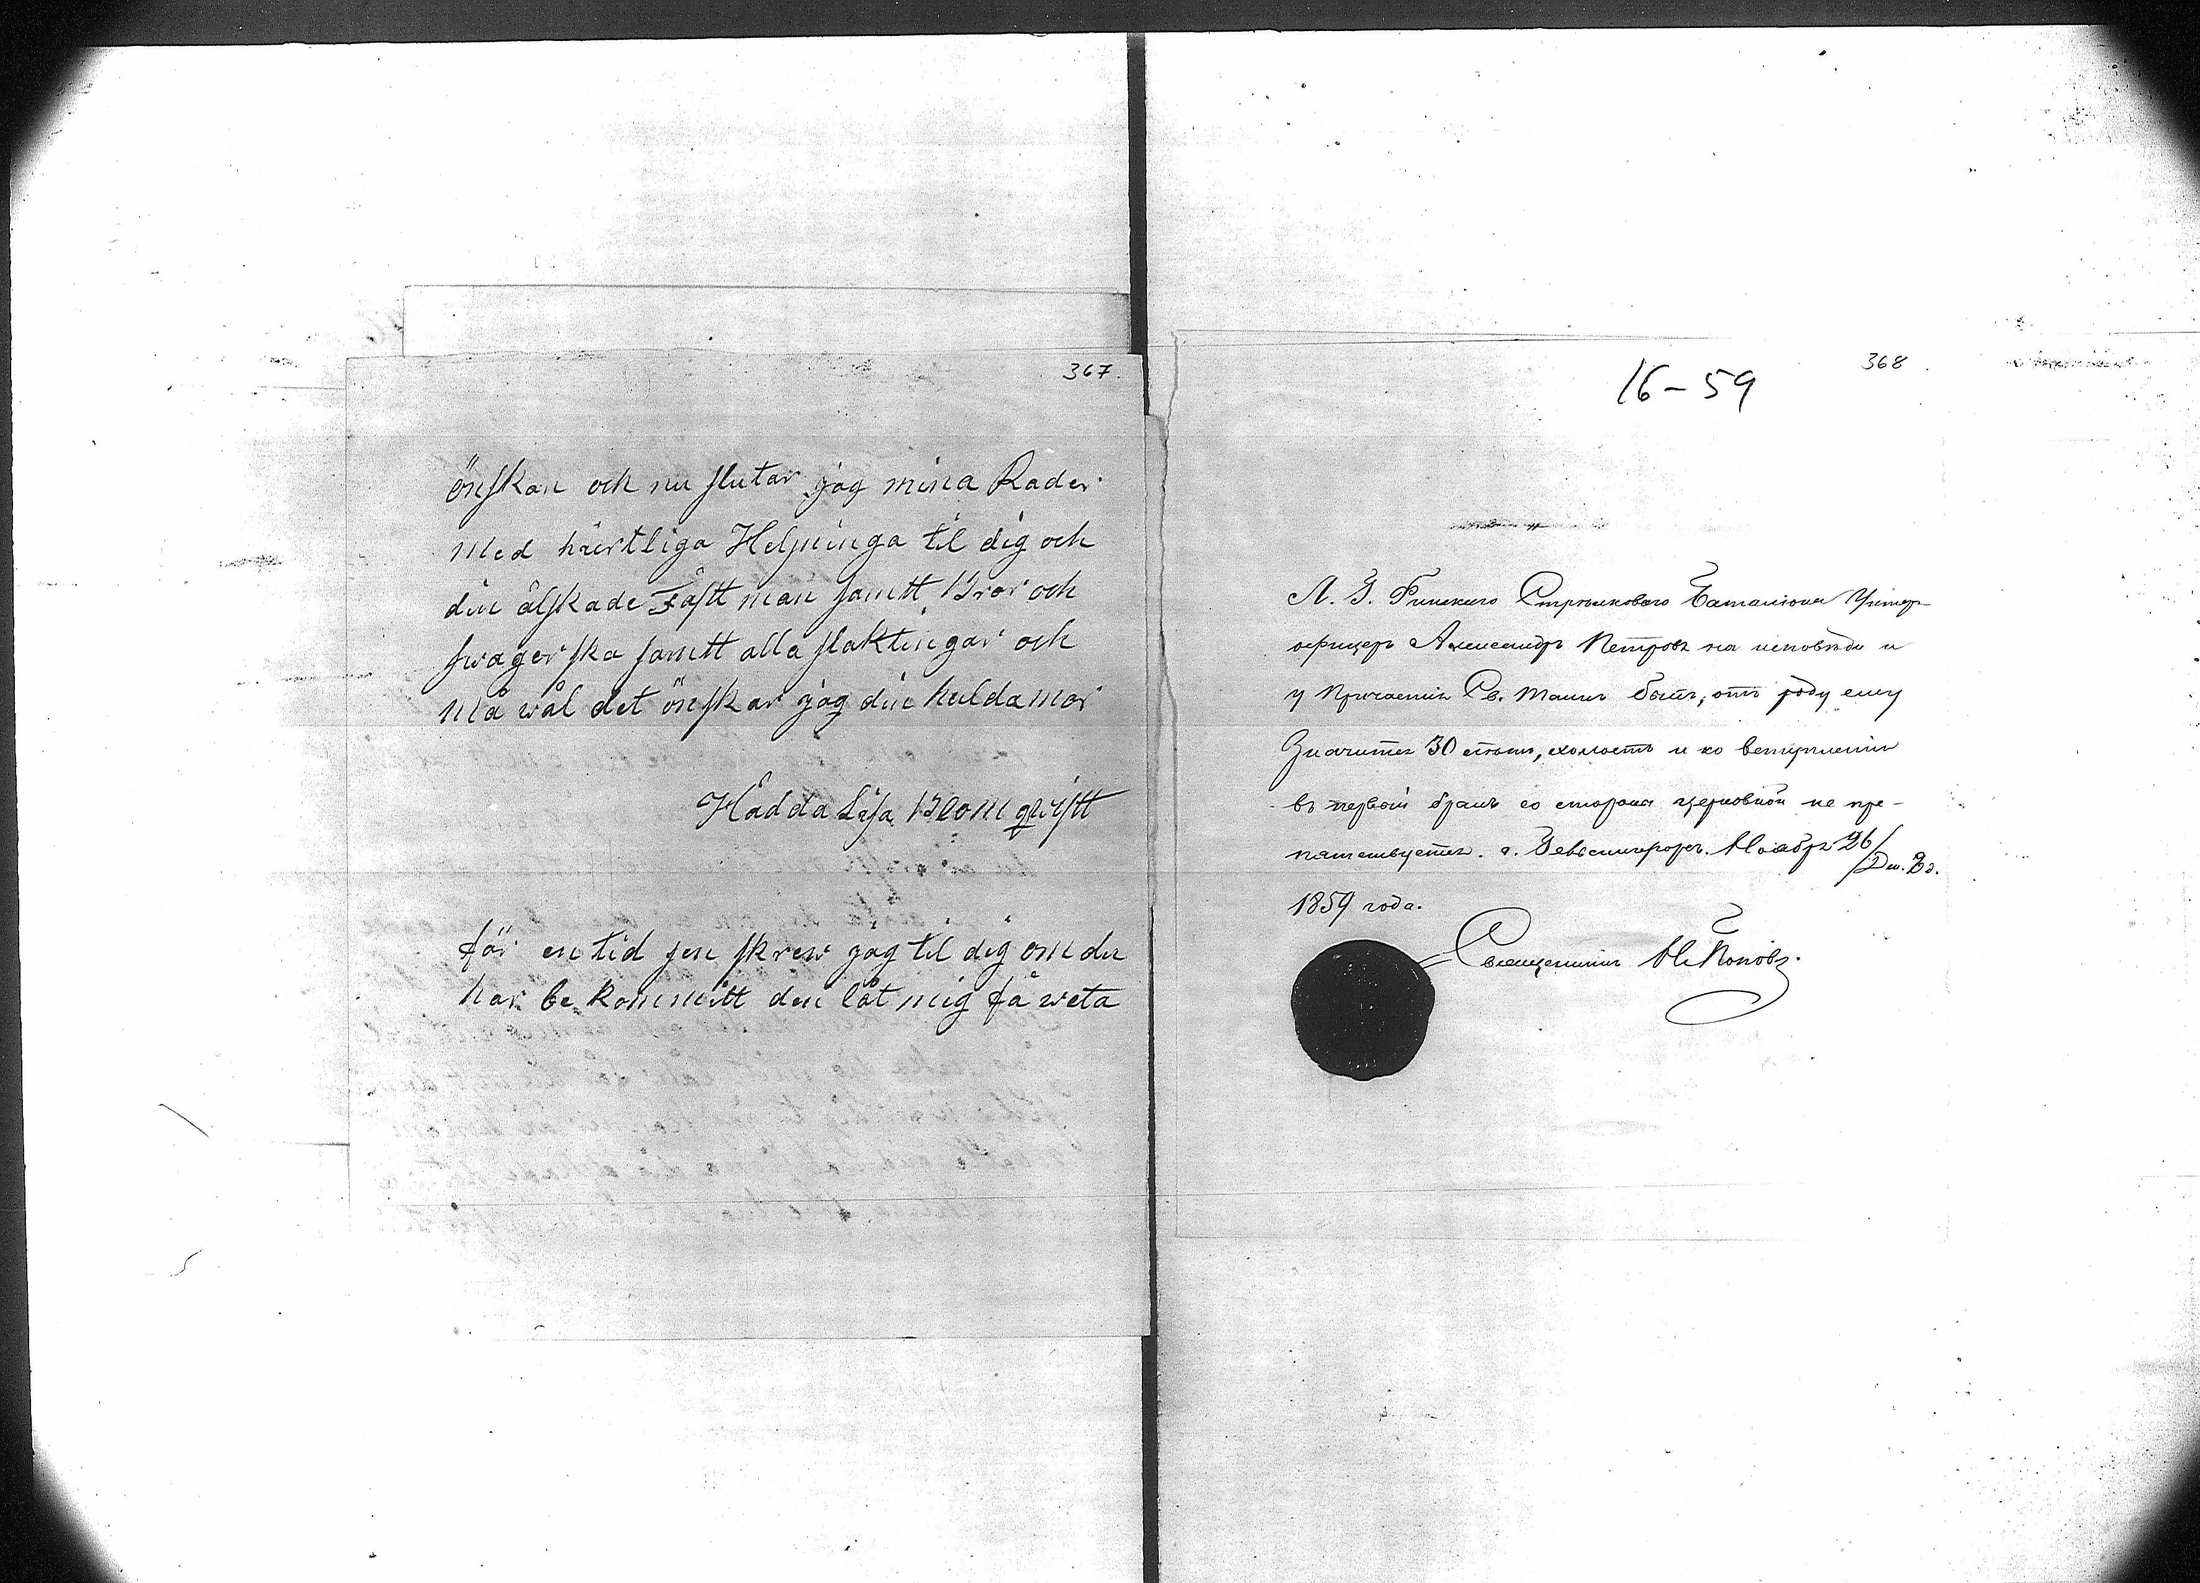 367.
önskan och nu slutar jag mina Rader
med härtliga Helsninga til dig och
din älskade Fästt man samtt Bror och
swagerska samtt alla slaktingar och
må wäl det önskar jag din hulda mor
Hädda Lisa Blomqwistt
för en tid sen skrew jag til dig om du
har be kommitt den låt mig få weta
368
16-59
Л. Г. Финскаго Стрѣлковаго Баталіона Унтер-
офицеръ Александръ Петровъ на исповѣди и
у Причастія Св. Таинъ былъ, отъ роду ему
значится 30 лѣтъ, холостъ и ко вступленію
въ первый бракъ со стороны церковной не пре-
пятствуется. г. Гельсингфорсъ. Ноября 26/Дек. 8 д.
1859 года.
Священникъ Н. Поповъ.